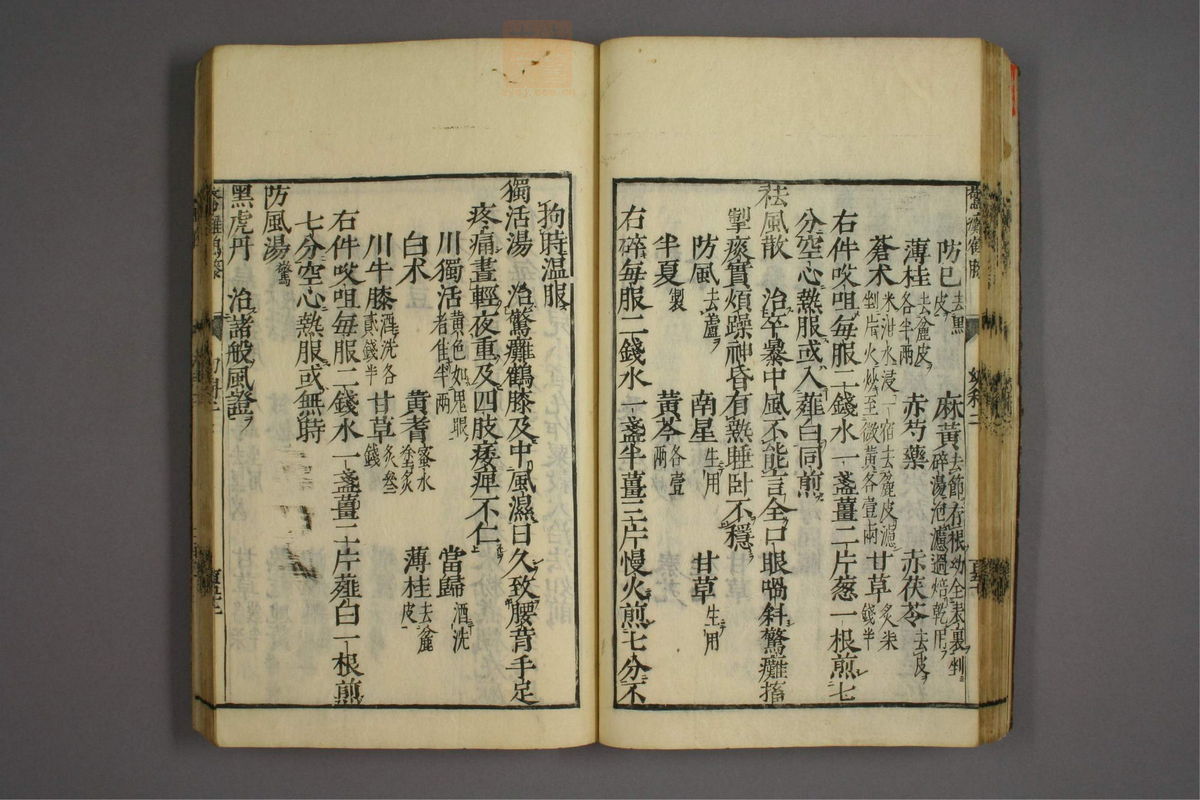 防巳去黑皮　麻黃去節存根
薄桂去麄皮各半兩　赤芍藥　赤茯苓去皮
蒼术米泔水浸一宿去麄皮濾剉片火炒至微黃各壹兩　甘草炙柒錢半
右件㕮咀每服二錢水一盞薑二片葱一根煎七
分空心熱服或入薤白同煎
祛風散　治卒暴中風不能言全口眼喎斜驚癱搐
掣痰實煩躁神昏有熱睡卧不穩
防風去蘆　南星生用　甘草生用
半夏製　黃芩各壹兩
右碎每服二錢水一盞半薑三片慢火煎七分不
拘時温服
獨活湯　治驚癱鶴膝及中風濕日久致腰背手足
疼痛晝輕夜重及四肢痿痺不仁
川獨活黃色如鬼眼者佳半兩　當歸酒洗
白术　黃耆蜜水塗炙　薄桂去麄皮
川牛膝酒洗各貳錢半　甘草炙叁錢
右件㕮咀每服二錢水一盞薑二片薤白一根煎
七分空心熱服或無時
防風湯驚
黑虎丹　治諸般風證